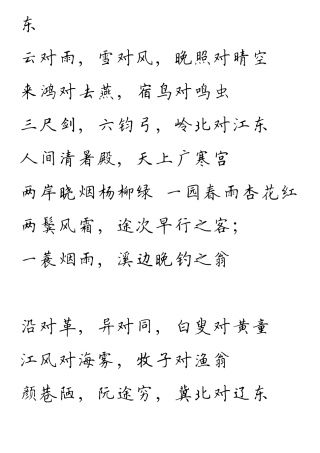 东
云对雨，雪对风，晚照对晴空
来鸿对去燕，宿鸟对鸣虫
三尺剑，六钧弓，岭北对江东
人间清暑殿，天上广寒宫
两岸晓烟杨柳绿 一园春雨杏花红
两鬓风霜，途次早行之客；
一蓑烟雨，溪边晚钓之翁
沿对革，异对同，白叟对黄童
江风对海雾，牧子对渔翁
颜巷陋，阮途穷，冀北对辽东